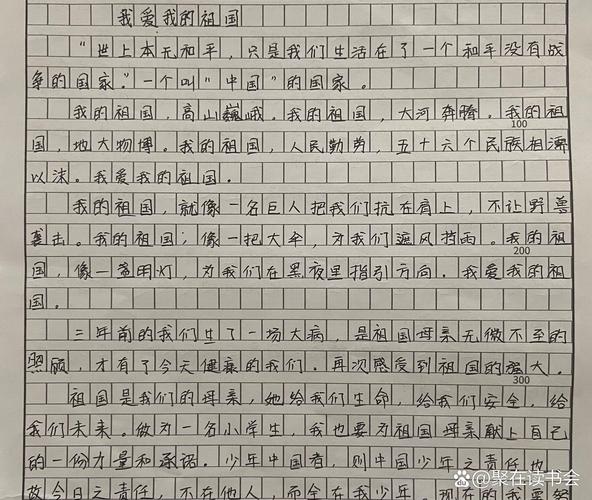 我爱我的祖国
“世上本无和平，只是我们生活在了一个和平没有战
争的国家。”一个叫“中国”的国家。
我的祖国，高山巍峨。我的祖国，大河奔腾。我的祖
100
国，地大物博。我的祖国，人民勤劳，五十六个民族相濡
以沫。我爱我的祖国。
我的祖国，就像一名巨人把我们抗在肩上，不让野兽
袭击。我的祖国；像一把大伞，为我们遮风挡雨。我的祖
200
国，像一盏明灯，为我们在黑夜里指引方向。我爱我的祖
国。
三年前的我们生了一场大病，是祖国母亲无微不至的
照顾，才有了今天健康的我们。再次感受到祖国的强大。
300
祖国是我们的母亲，她给我们生命，给我们安全，给
我们未来。做为一名小学生，我也要为祖国母亲献上自己
的一份力量和承诺。少年中国者，则中国少年之责任也
故今日之责任，不在他人，而全在我少年。现在的我要努
@聚在读书会